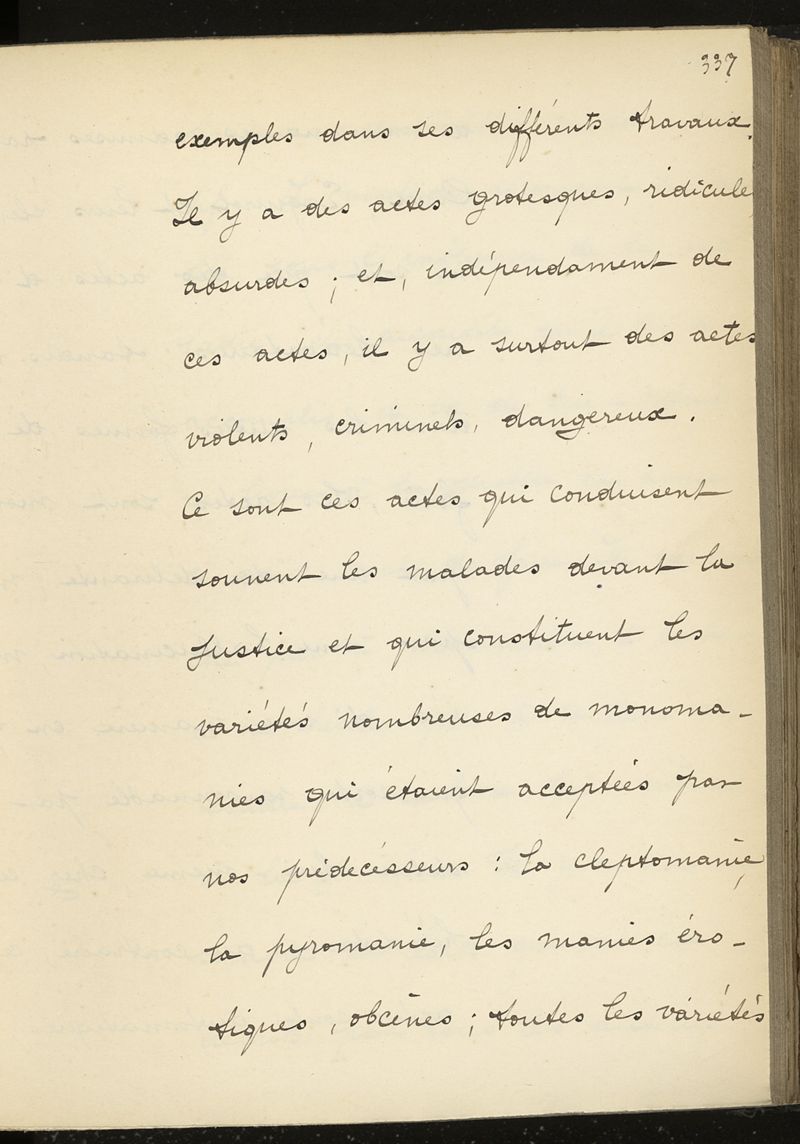 337
exemples dans ses différents travaux.
Il y a des actes grotesques, ridicules,
absurdes ; et, indépendament de
ces actes, il y a surtout des actes
violents, criminels, dangereux.
Ce sont ces actes qui conduisent
souvent les malades devant la
Justice et qui constituent les
variétés nombreuses de monoma-
nies qui étaient acceptées par
nos prédécésseurs : la cleptomanie,
la pyromanie, les manies éro-
tiques, obcènes ; toutes les variétés